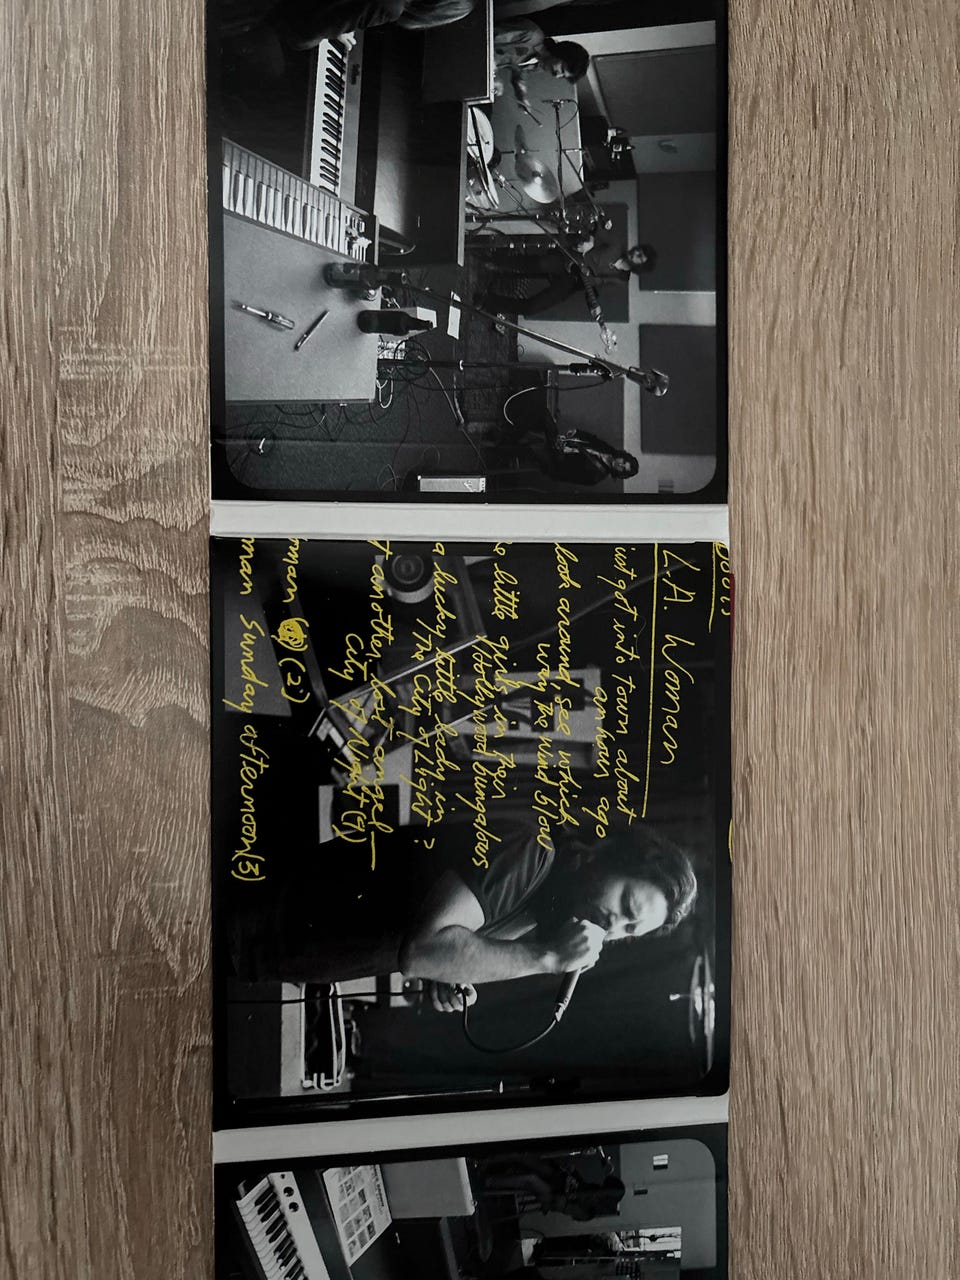 Doors
L.A. Woman
just got into town about
an hour ago
look around, see which
way the wind blow
little girls in their
Hollywood bungalows
a lucky little lady in
The City of Light?
another lost angel
City of Night (4)
man (2)
man Sunday afternoon (3)